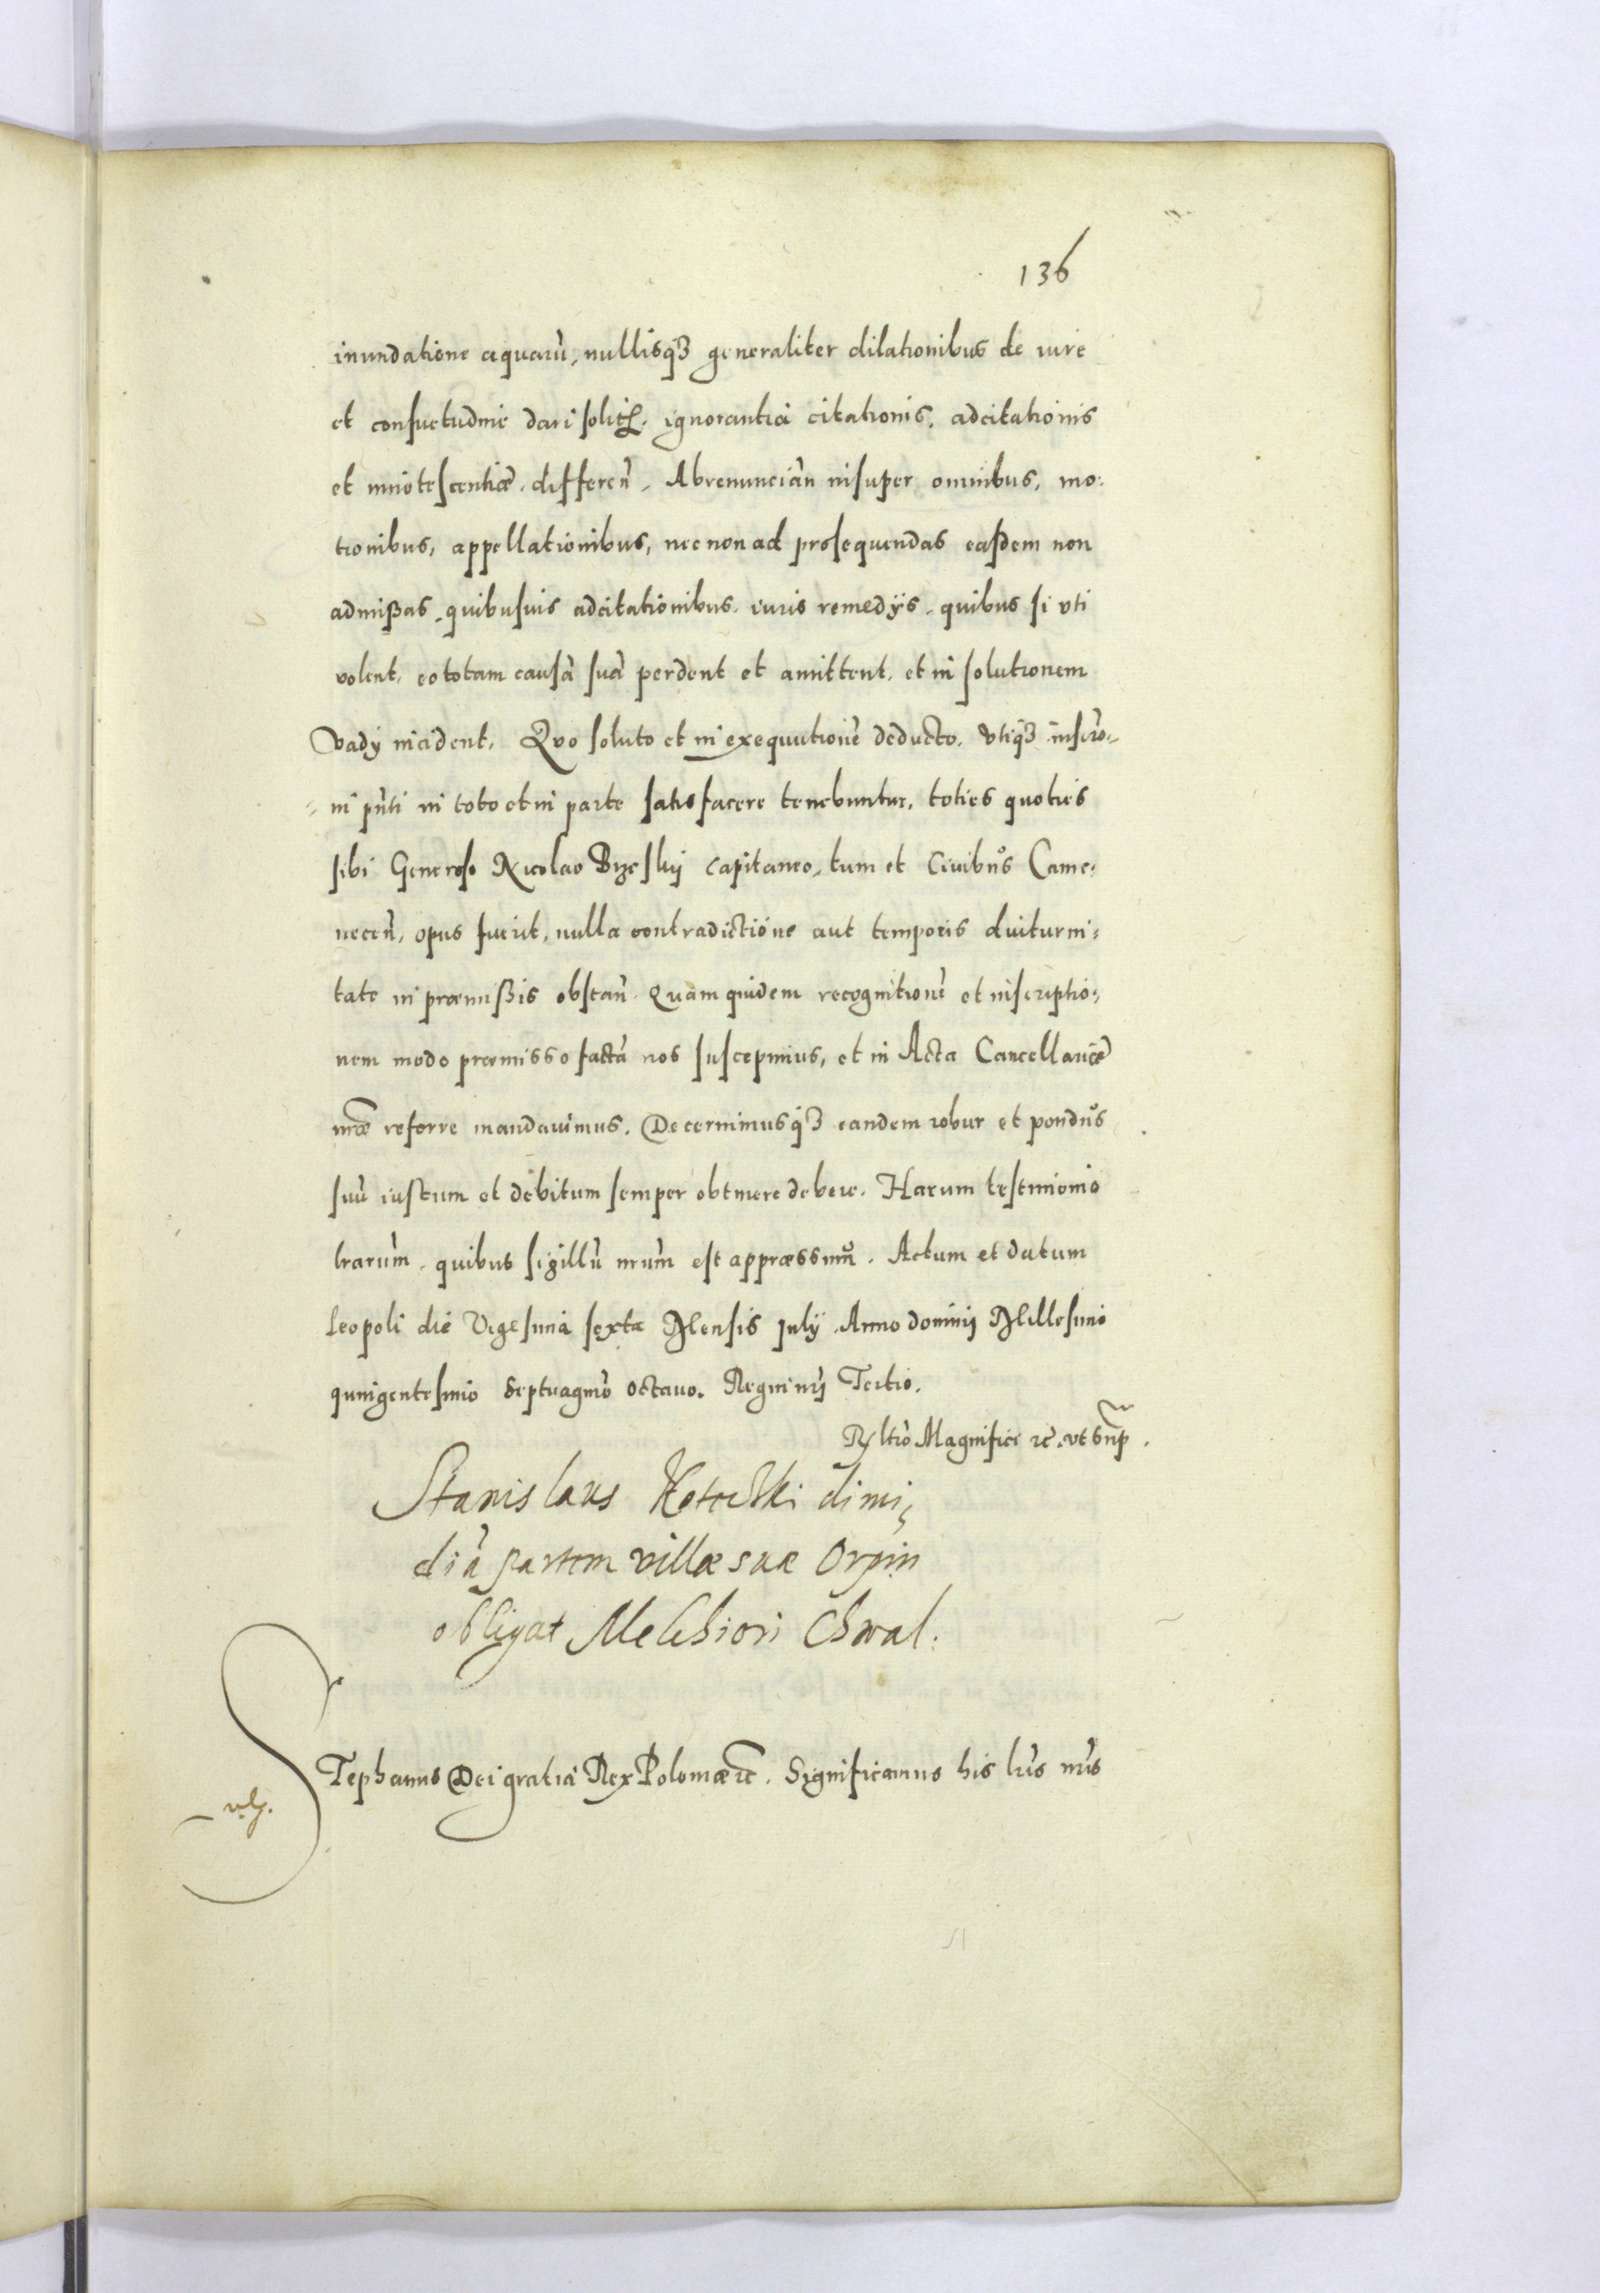 136
inundatione aquarũ, nullisq3 generaliter dilationibus de iure
et consuetudine dari solitis. ignorantia citationis, adcitationis
et innotescentiæ. differeñ. Abrenunciañ insuper omnibus, mo:
tionibus, appellationibus, nec non ad prosequendas easdem non
admißas. quibusuis adcitationibus. iuris remedÿs. quibus si vti
volent. eo totam causã suã perdent et amittent. et in solutionem
vadÿ incident. Quo soluto et in exequutionẽ deducto. vtiq3 inscrõ-
ni pñti in toto et in parte satisfacere tenebuntur. toties quoties
sibi Generoso Nicolao Brzeskij Capitaneo, tum et Ciuibus Came:
neceñ, opus fuerit, nulla contradictione aut temporis diuturni:
tate in præmißis obstañ. Quam quidem recognitionẽ et inscriptio:
nem modo præmisso factã nos suscepimus, et in Acta Cancellariæ
nræ referre mandauimus. Decernimusq3 eandem robur et pondus
suũ iustum et debitum semper obtinere debere. Harum testimonio
lrarum. quibus sigillũ nrum est appræssum. Actum et datum
Leopoli die Vigesima sexta Mensis Julÿ Anno dominij Millesimo
quingentesimo Septuagmõ octauo. Regni nrj Tertio.
Rltio Magnifici rc. vt supr.
Stanislaus dimi,
diã partem villæ suæ Orpin
obligat Melchiori Chwal:
STephanus Dei gratia Rex Poloniæ rc. Significamus his lris nris